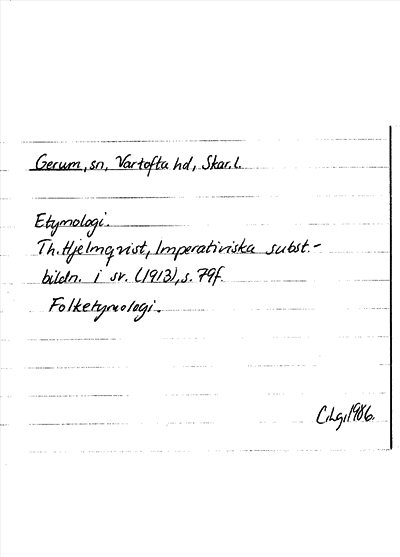 Gerum, sn, Vartofta hd, Skar.l.
Etymologi.
Th. Hjelmqvist, Imperativiska subst.-
bildn. i sv. (1913), s. 79f.
Folketymologi.
C.Lg, 1986.